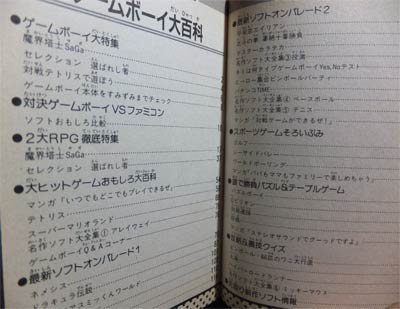 ゲームボーイ大百科
●ゲームボーイ大特集
魔界塔士SaGa
セレクション 選ばれし者
対戦テトリスで遊ぼう
ゲームボーイ本体をすみずみまでチェック
●対決ゲームボーイVSファミコン
ソフトおもしろ比較
●2大RPG徹底特集
魔界塔士SaGa
セレクション 選ばれし者
●大ヒットゲームおもしろ大百科
マンガ「いつでもどこでもプレイできるぜ」
テトリス
スーパーマリオランド
名作ソフト大全集① アレイウェイ
ゲームQ&Aコーナー
●最新ソフトオンパレード1
ネメシス
ドラキュラ伝説
●最新ソフトオンパレード2
名作ソフト大全集③
Yes,Noテスト
ヒーロー集合ピンボールパーティー
パチンコTIME
名作ソフト大全集④ ベースボール
名作ソフト大全集⑤ テニス
マンガ「対戦ゲームができるぜ!」
●スポーツゲームそろいぶみ
ゴルフ
シーサイドバレー
ワールドボーリング
マンガ「パパもママもファミリーで楽しめちゃう」
パズル&テーブルゲーム
パズルボーイ
マンガ「ステレオサウンドでグーッドですよ」
クイズ
新作ソフト情報